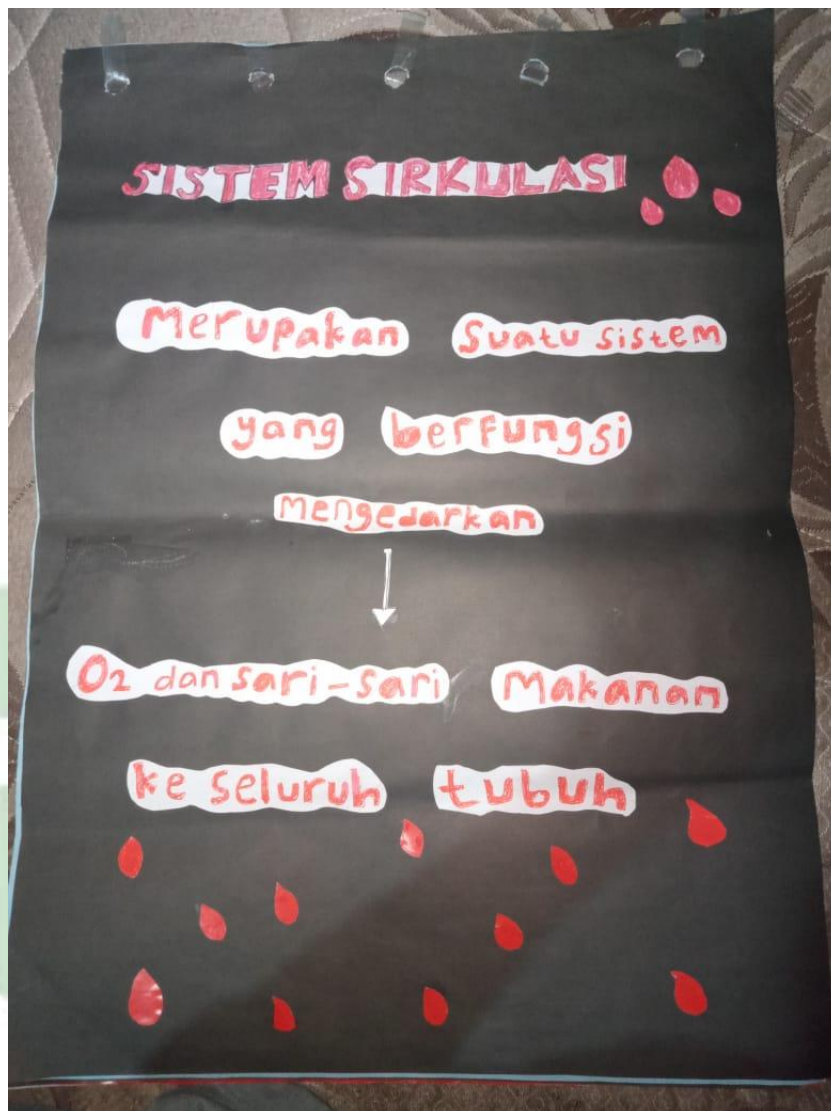 SISTEM SIRKULASI
Merupakan Suatu sistem
yang berfungsi
mengedarkan
O2 dan sari-sari Makanan
ke seluruh tubuh